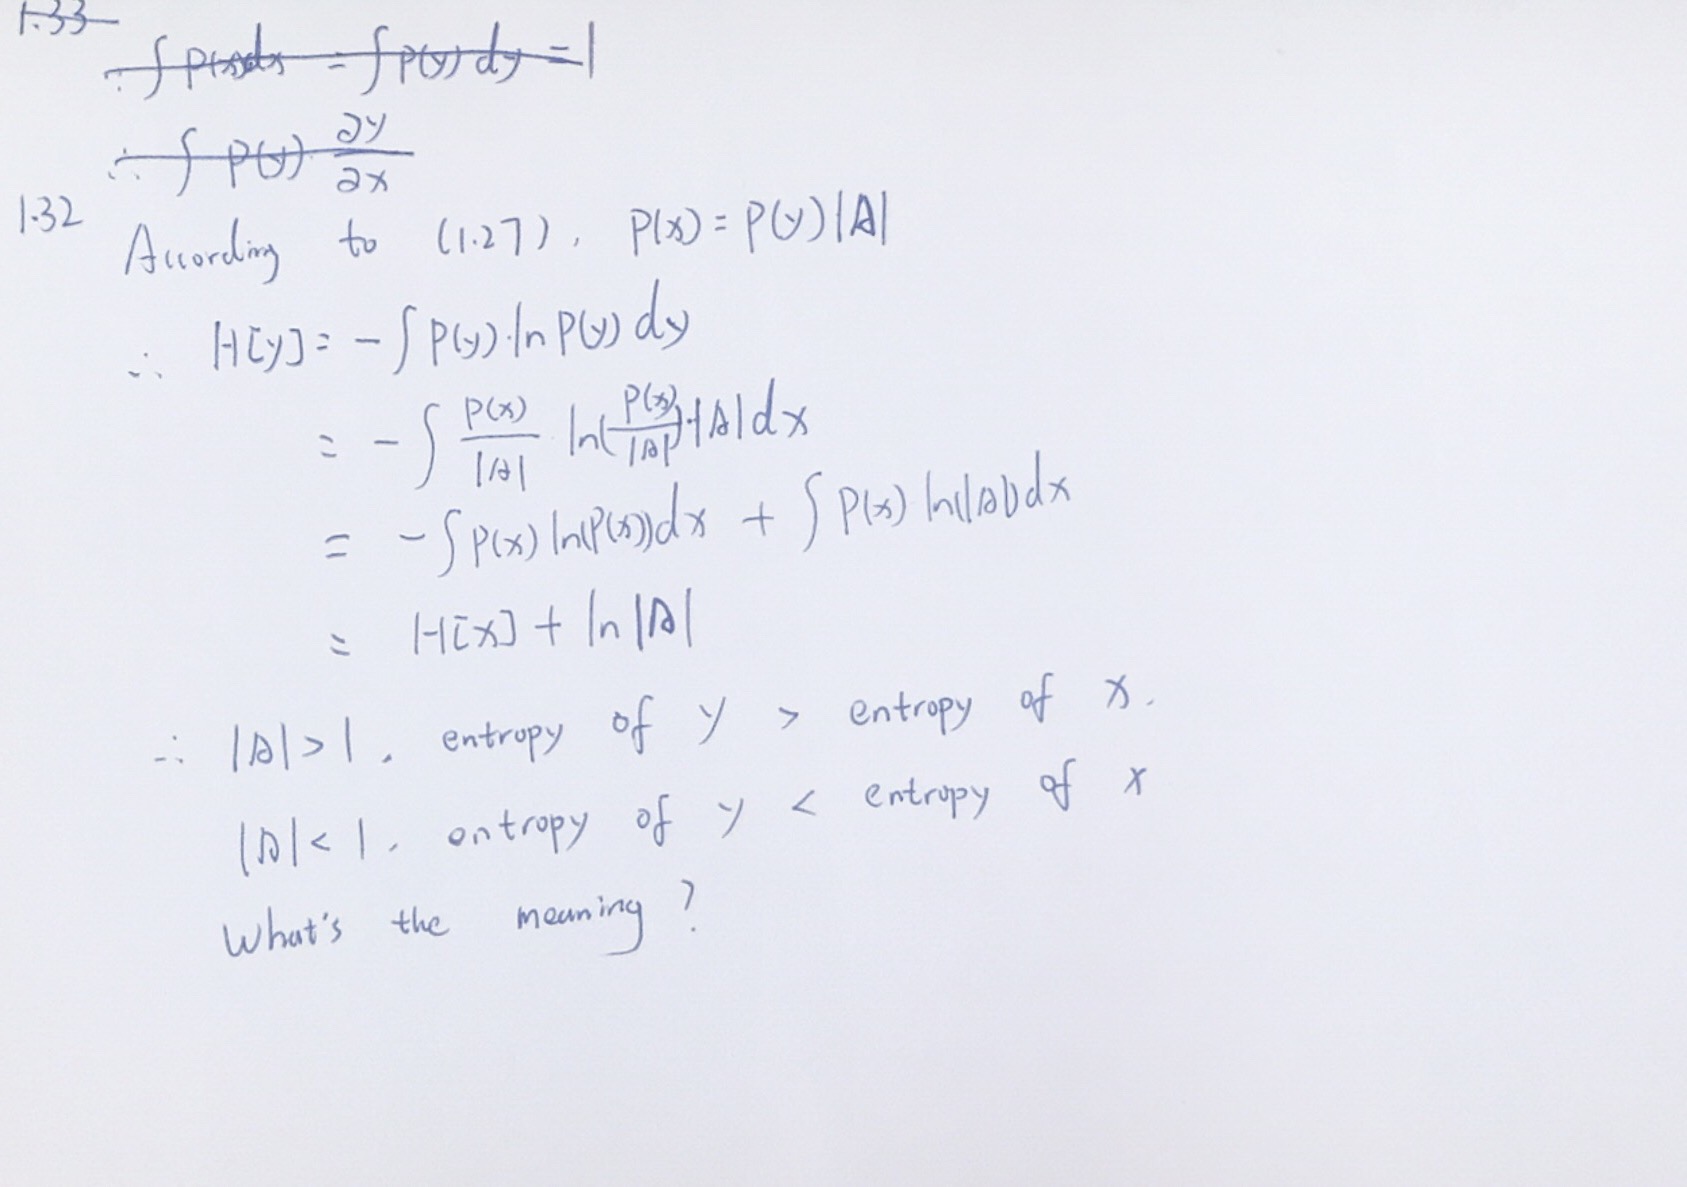 1.33
∴ ∫ p(x)dx = ∫ p(y) dy = 1
∴ ∫ p(y) ∂y/∂x
1.32
According to (1.27), P(x) = P(y)|A|
∴ H[y] = - ∫ P(y)·ln P(y) dy
= - ∫ P(x)/|A| ln(P(x)/|A|)·|A|dx
= - ∫ P(x) ln(P(x))dx + ∫ P(x) ln(|A|)dx
= H[x] + ln |A|
∴ |A| > 1, entropy of y > entropy of x.
|A| < 1, entropy of y < entropy of x
What's the meaning?